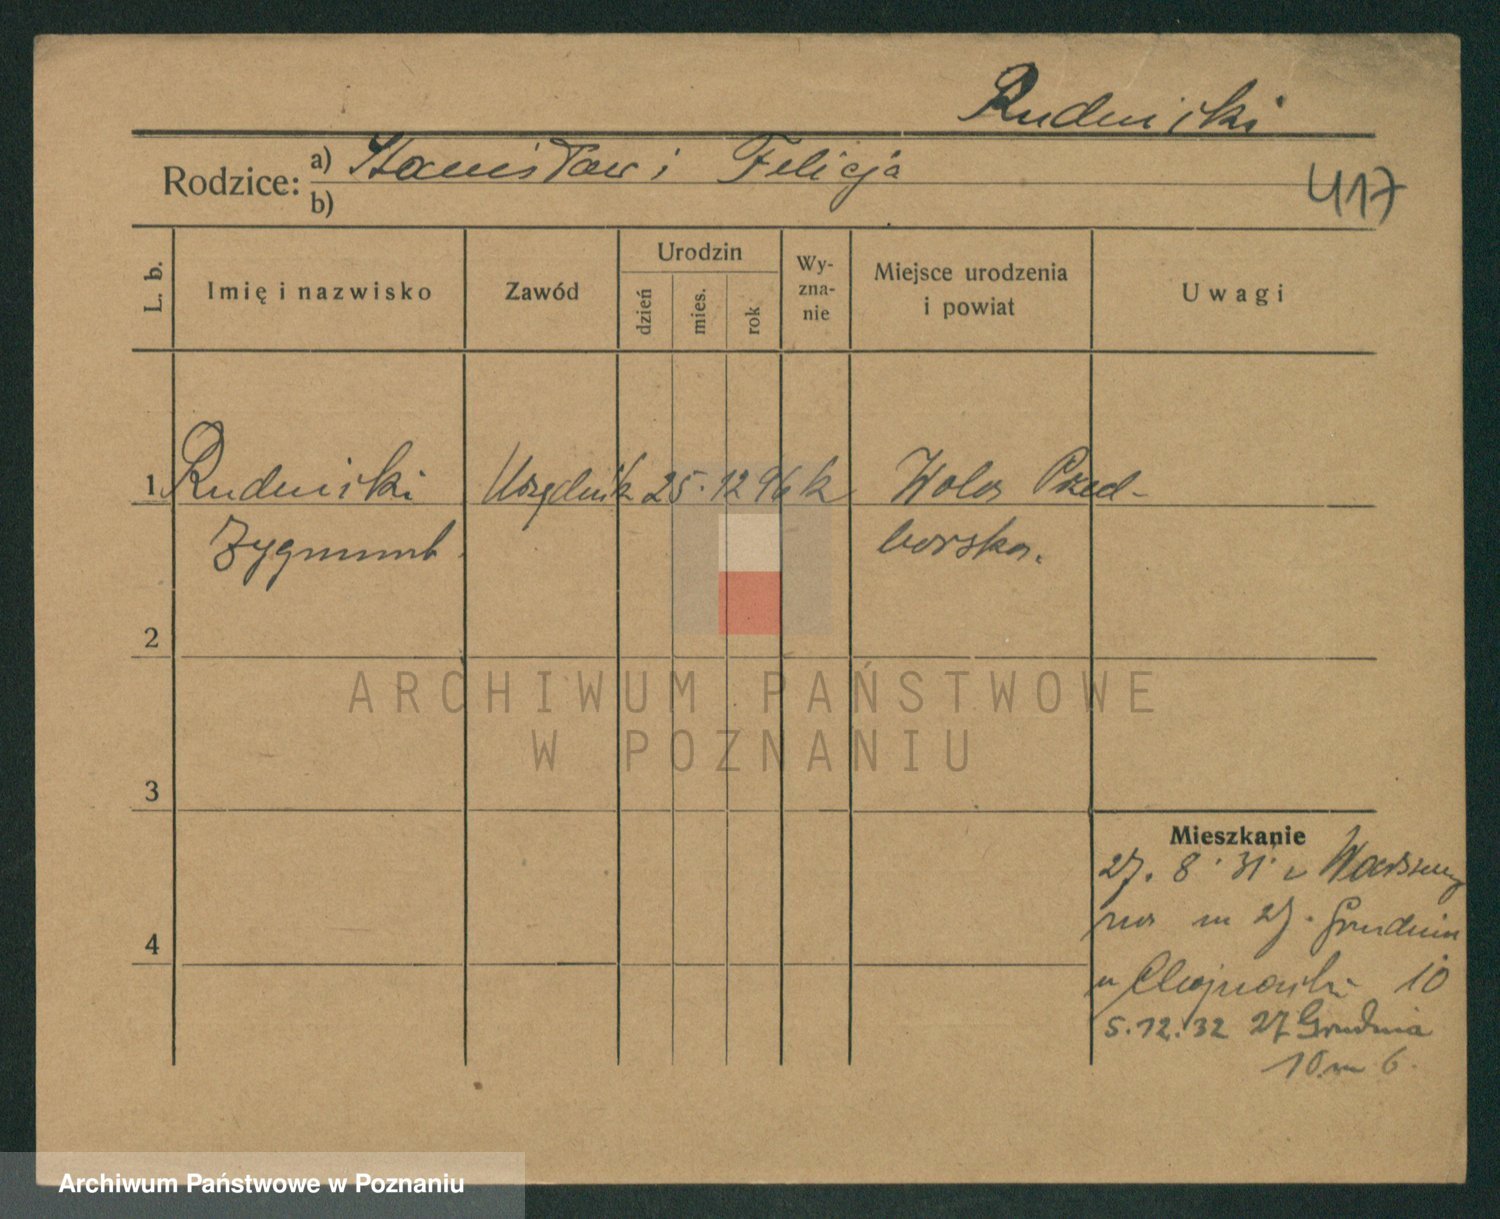 Rudnicki
Rodzice: a) Stanisław i Felicja
b)
417
L. b.
Imię i nazwisko
Zawód
Urodzin
dzień
mies.
rok
Wy-
zna-
nie
Miejsce urodzenia
i powiat
Uwagi
1 Rudnicki Urzędnik 25. 12 96 k Wola Przed-
Zygmunt borska.
2
ARCHIWUM PAŃSTWOWE
W POZNANIU
3
Mieszkanie
27. 8. 31. z Warszawy
na 27. Grudnia
u Chojnacki 10
4
5.12.32 27 Grudnia
10 m 6.
Archiwum Państwowe w Poznaniu